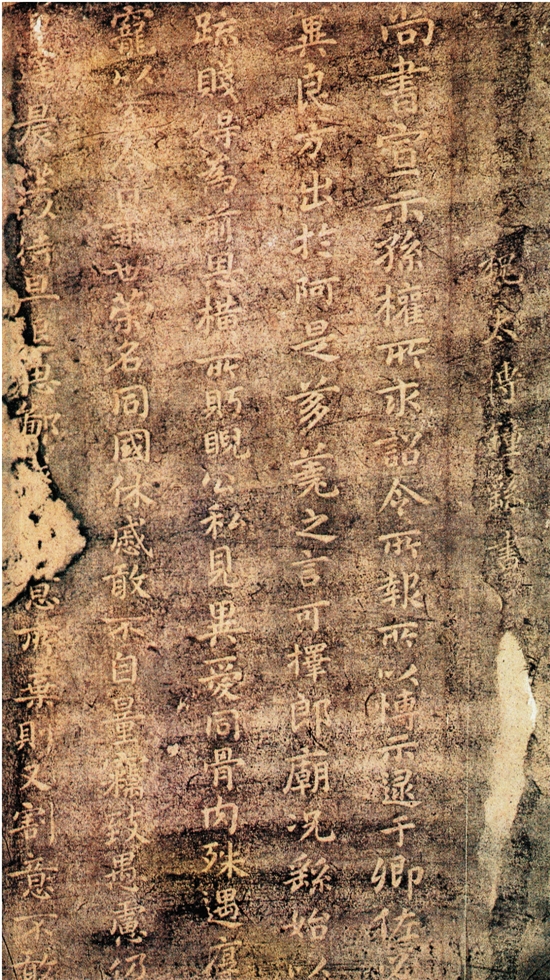 魏太傅鍾繇書
尚書宣示孫權所求詔令所報所以博示逮于卿佐
冀良方出於阿是芻蕘之言可擇郎廟況繇始以
疏賤得為前恩橫所盱睨公私見異愛同骨肉殊遇厚
寵以至今日再世榮名同國休慼敢不自量竊致愚慮仍
達晨坐以待旦退思鄙意所棄則又割意不敢